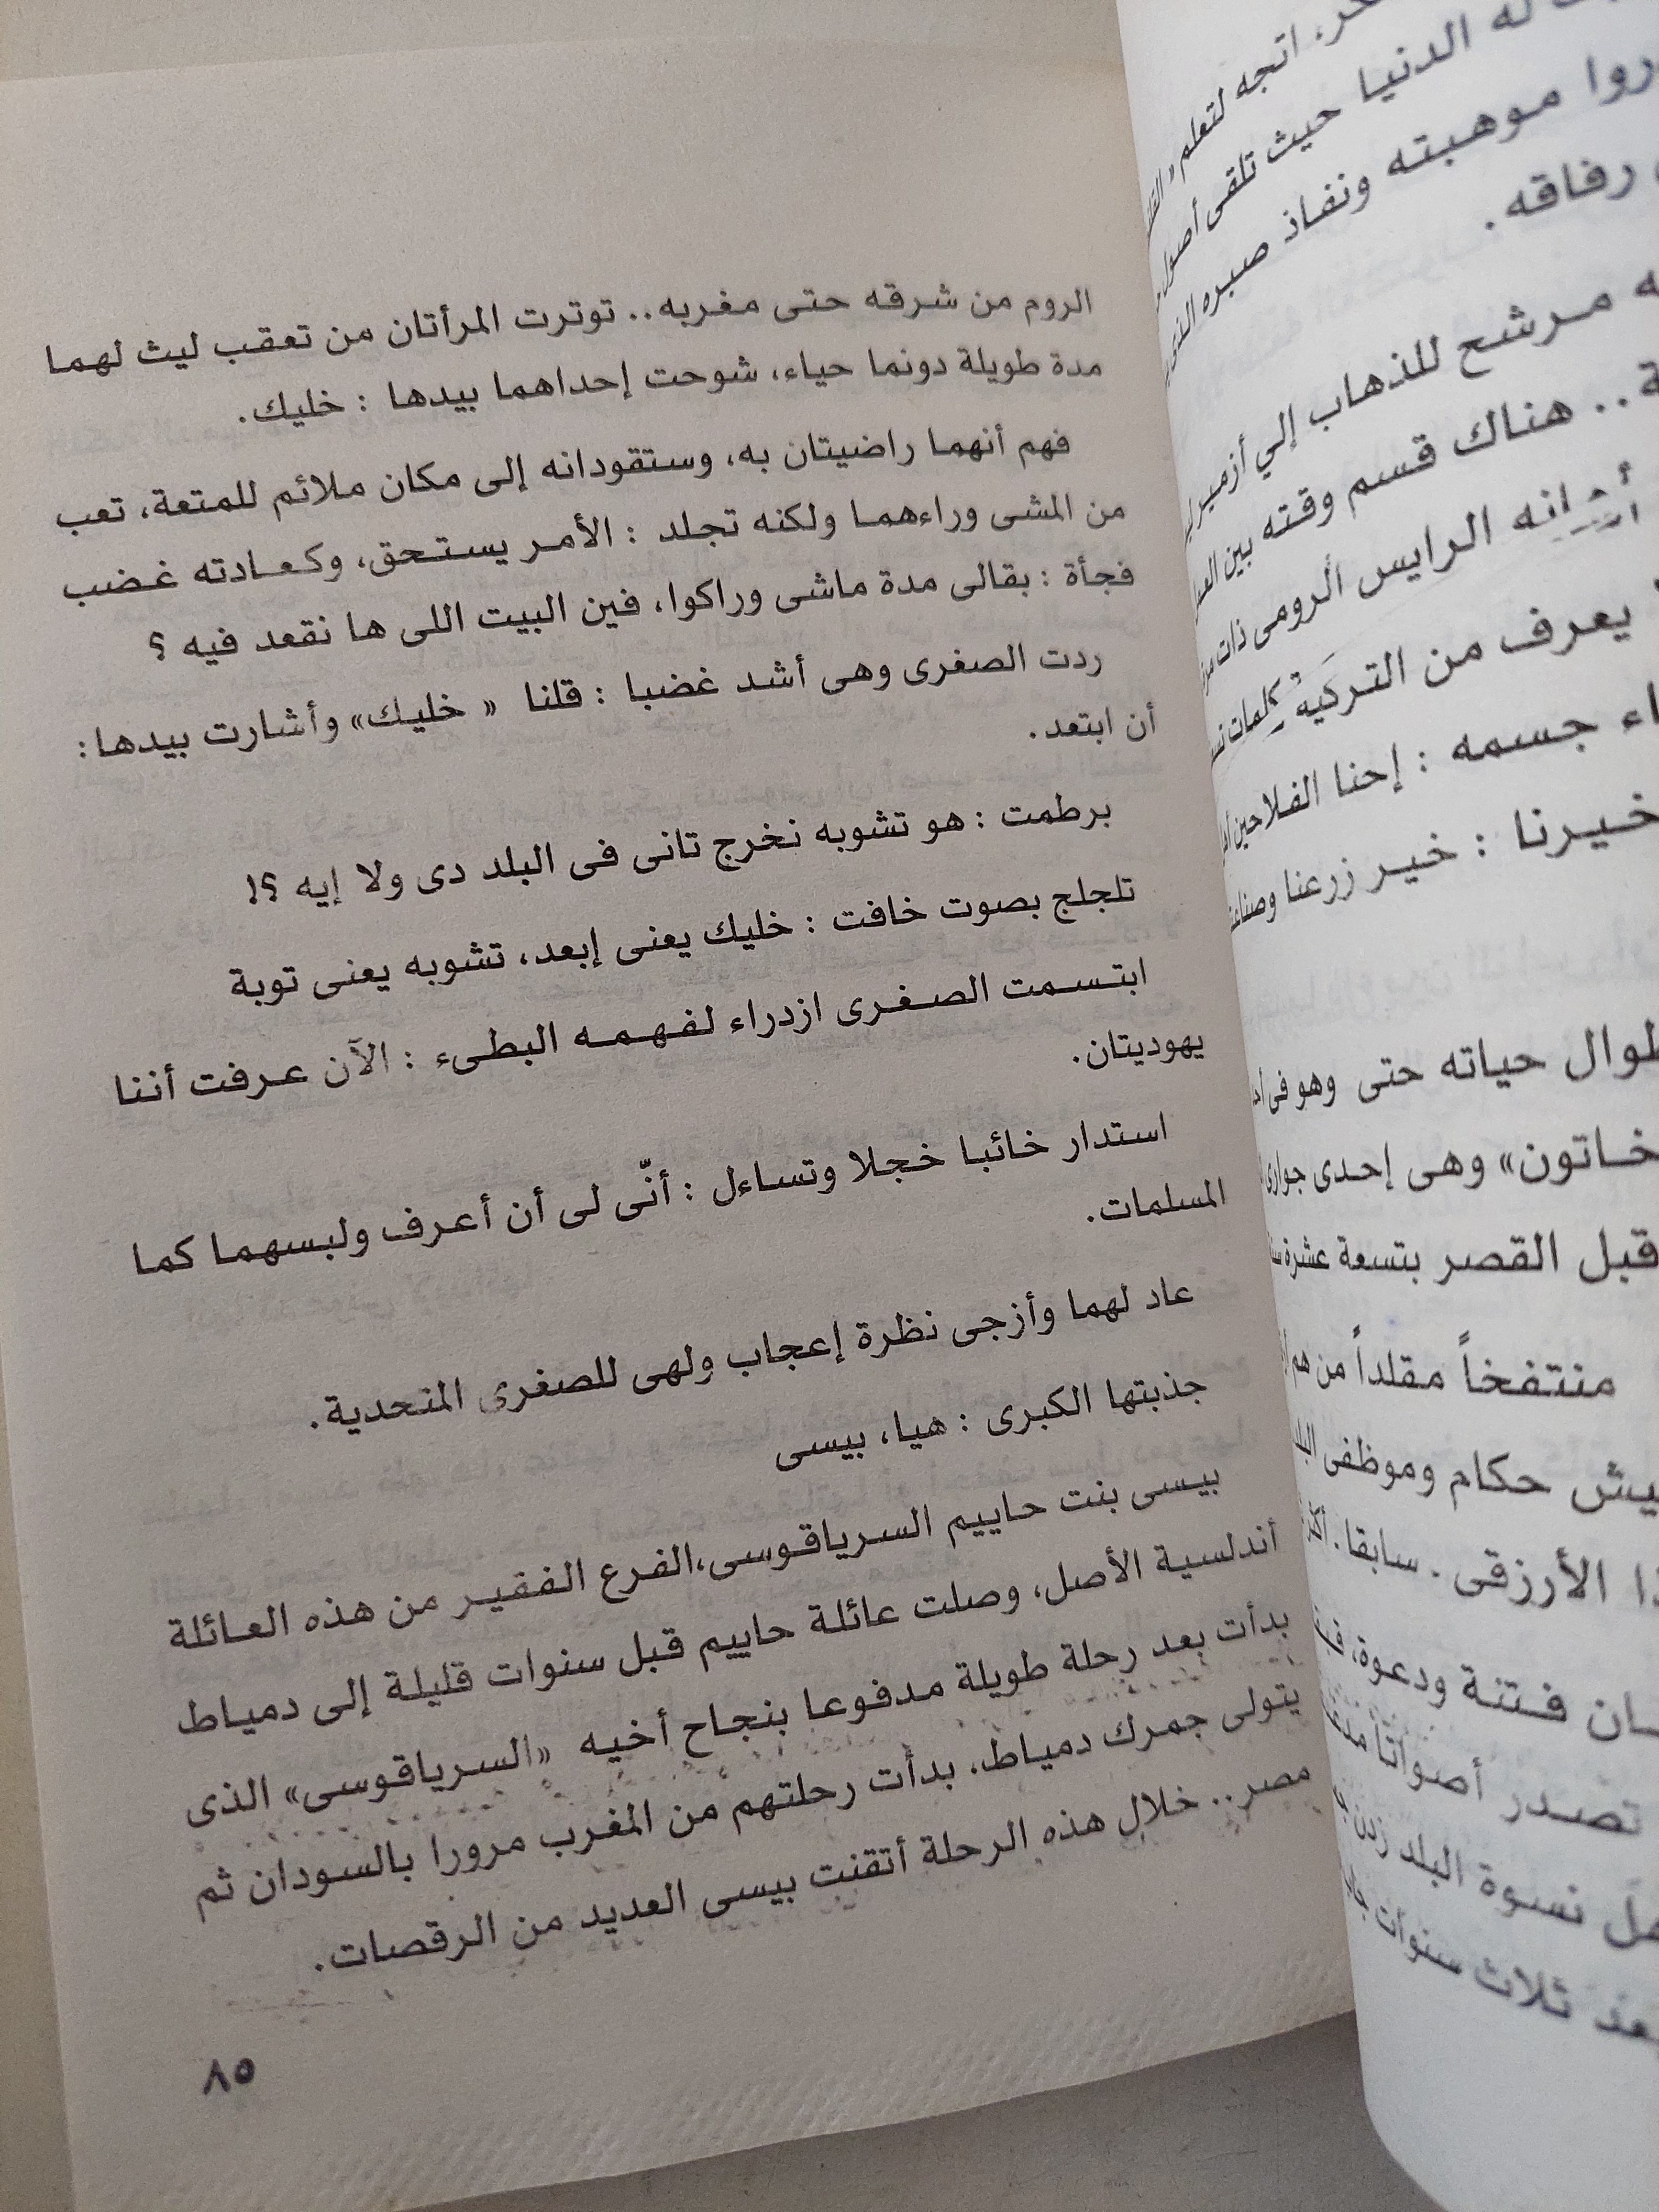 الروم من شرقه حتى مغربه.. توترت المرأتان من تعقب ليث لهما
مدة طويلة دونما حياء، شوحت إحداهما بيدها : خليك.
فهم أنهما راضيتان به، وستقودانه إلى مكان ملائم للمتعة، تعب
من المشى وراءهما ولكنه تجلد : الأمر يستحق، وكعادته غضب
فجأة : بقالى مدة ماشى وراكوا، فين البيت اللى ها نقعد فيه ؟
ردت الصغرى وهى أشد غضبا : قلنا « خليك» وأشارت بيدها :
أن ابتعد.
برطمت : هو تشوبه نخرج تانى فى البلد دى ولا إيه ؟!
تلجلج بصوت خافت : خليك يعنى إبعد، تشوبه يعنى توبة
ابتسمت الصغرى ازدراء لفهمه البطىء : الآن عرفت أننا
يهوديتان.
استدار خائبا خجلا وتساءل : أنّى لى أن أعرف ولبسهما كما
المسلمات.
عاد لهما وأزجى نظرة إعجاب ولهى للصغرى المتحدية.
جذبتها الكبرى : هيا، بيسى
بيسى بنت حاييم السرياقوسى،الفرع الفقير من هذه العائلة
أندلسية الأصل، وصلت عائلة حاييم قبل سنوات قليلة إلى دمياط
بدأت بعد رحلة طويلة مدفوعا بنجاح أخيه «السرياقوسى» الذى
يتولى جمرك دمياط. بدأت رحلتهم من المغرب مرورا بالسودان ثم
مصر.. خلال هذه الرحلة أتقنت بيسى العديد من الرقصات.
٨٥
اتجه لتعلم
له الدنيا حيث تلقى أصول
موهبته ونفاذ صبره
رفاقه.
مرشح للذهاب إلي أزمير
هناك قسم وقته بين
الرايس الرومى ذات
يعرف من التركية كلمات
جسمه : إحنا الفلاحين
خيرنا : خير زرعنا
طوال حياته حتى وهو فى
خاتون» وهى إحدى جوارى
قبل القصر بتسعة عشرة
منتفخاً مقلداً من هم
حكام وموظفى
الأرزقى . سابقا.
فتنة ودعوة،
تصدر أصواتا
نسوة البلد
ثلاث سنوات